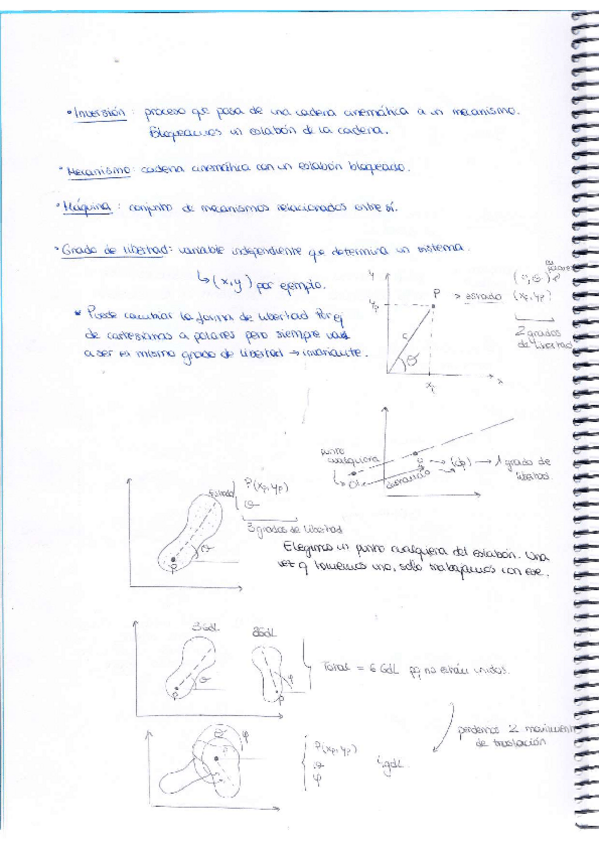 • Inversión : proceso qe pasa de una cadena cinemática a un mecanismo.
Bloqueamos un eslabón de la cadena.
• Mecanismo : cadena cinemática con un eslabón bloqueado.
• Máquina : conjunto de mecanismos relacionados entre sí.
• Grado de libertad: variable independiente qe determina un sistema.
↳ (x,y) por ejemplo.
• Puede cambiar la forma de libertad Por ej
de cartesianas a polares pero siempre
a ser el mismo grado de libertad → invariante.
y
yp
P
> estado (xp, yp)
2 grados
de libertad
θ
x
punto
cualquiera
→ (dp) → 1 grado de
libertad.
estado
P(xp, yp)
θ
3 grados de libertad
θ
P
Elegimos un punto cualquiera del eslabón. Una
vez q tomemos uno, solo trabajamos con ese.
3GdL
3GdL
θ
P
φ
P
Total = 6 GdL pq no están unidos.
perdemos 2 movimien
de traslación
φ
P
P(xp, yp)
θ
φ
gdL